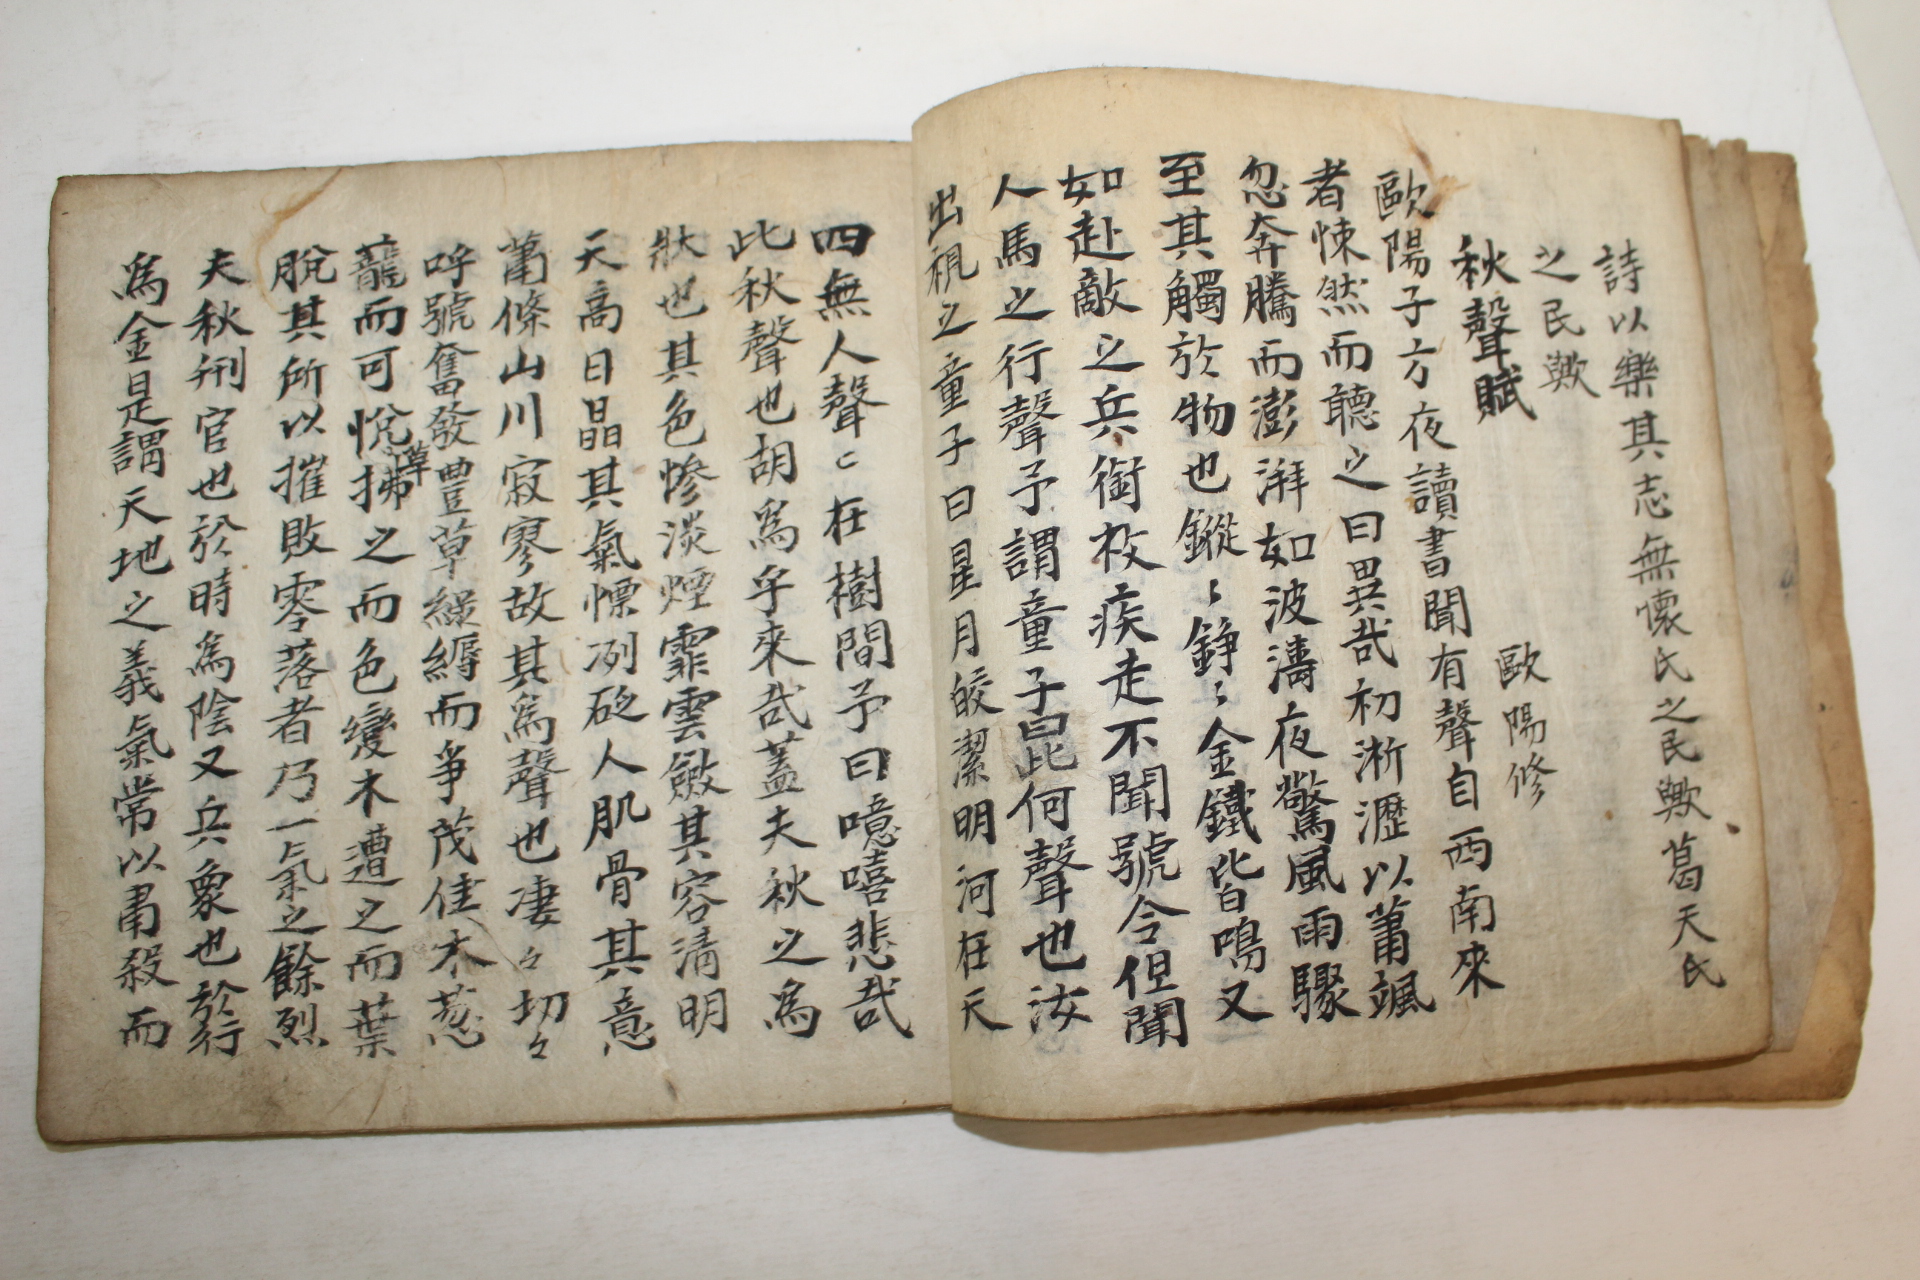 詩以樂其志無懷氏之民歟葛天氏
之民歟
秋聲賦 歐陽修
歐陽子方夜讀書聞有聲自西南來
者悚然而聽之曰異哉初淅瀝以蕭颯
忽奔騰而澎湃如波濤夜驚風雨驟
至其觸於物也鏦〻錚〻金鐵皆鳴又
如赴敵之兵銜枚疾走不聞號令但聞
人馬之行聲予謂童子曰此何聲也汝
出視之童子曰星月皎潔明河在天
四無人聲〻在樹間予曰噫嘻悲哉
此秋聲也胡爲乎來哉蓋夫秋之爲
狀也其色慘淡煙霏雲斂其容清明
天高日晶其氣慄冽砭人肌骨其意
蕭條山川寂寥故其爲聲也凄々切々
呼號奮發豊草綠縟而爭茂佳木葱
蘢而可悅草拂之而色變木遭之而葉
脫其所以摧敗零落者乃一氣之餘烈
夫秋刑官也於時爲陰又兵象也於行
爲金是謂天地之義氣常以肅殺而